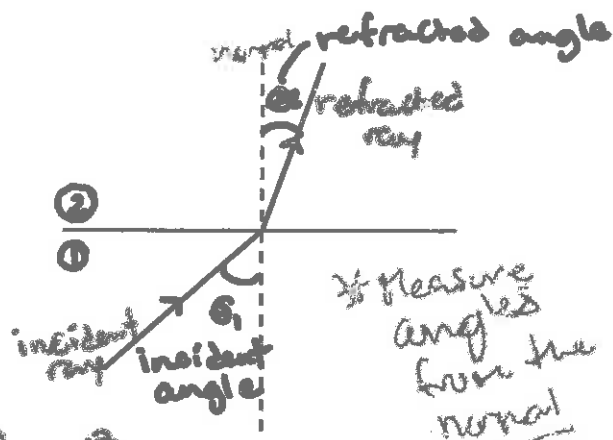 normal
refracted angle
θ2
refracted
ray
②
①
incident
ray
θ1
incident
angle
* Measure
angles
from the
normal